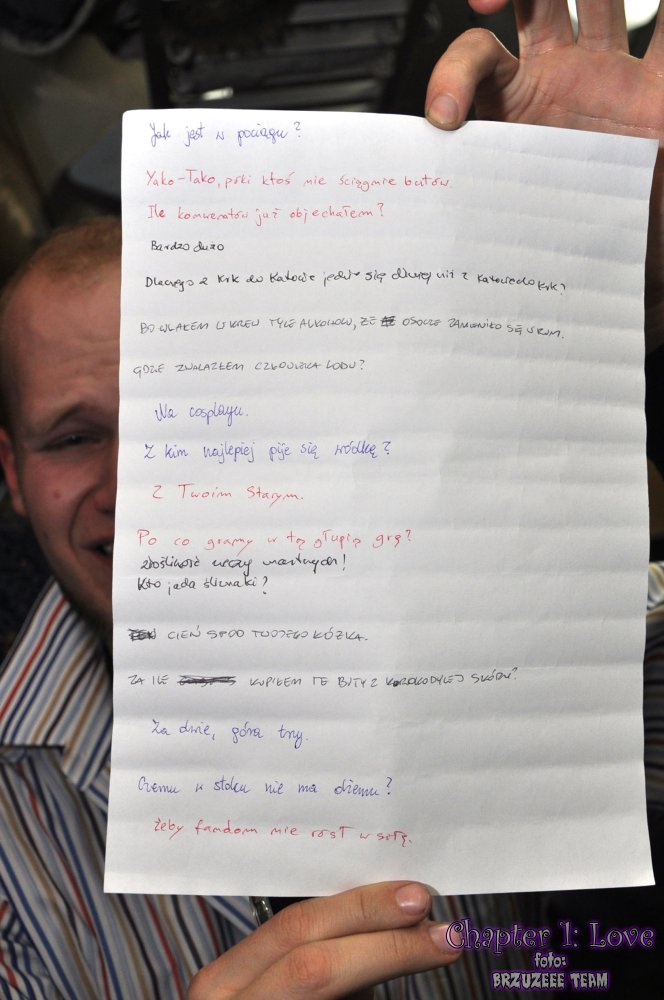 Jak jest w pociągu?
Yako-Tako, póki ktoś nie ściągnie butów.
Ile konwentów już objechałem?
Bardzo dużo
Dlaczego z Krk do Katowic jedzie się dłużej niż z Katowic do Krk?
BO WLAŁEM W KREW TYLE ALKOHOLU, ŻE OSOCZE ZAMIENIŁO SIĘ W RUM.
GDZIE ZNALAZŁEM CZŁOWIEKA LODU?
Na cosplayu.
Z kim najlepiej pije się wódkę?
Z Twoim Starym.
Po co gramy w tą głupią grę?
złośliwość rzeczy martwych!
Kto jada ślimaki?
CIEŃ SPOD TWOJEGO ŁÓŻKA.
ZA ILE KUPIŁEM TE BUTY Z KROKODYLEJ SKÓRY?
Za dwie, góra trzy.
Czemu w stoku nie ma dżemu?
Żeby fandom nie rósł w siłę.
Chapter 1: Love
foto:
BRZUZEEE TEAM